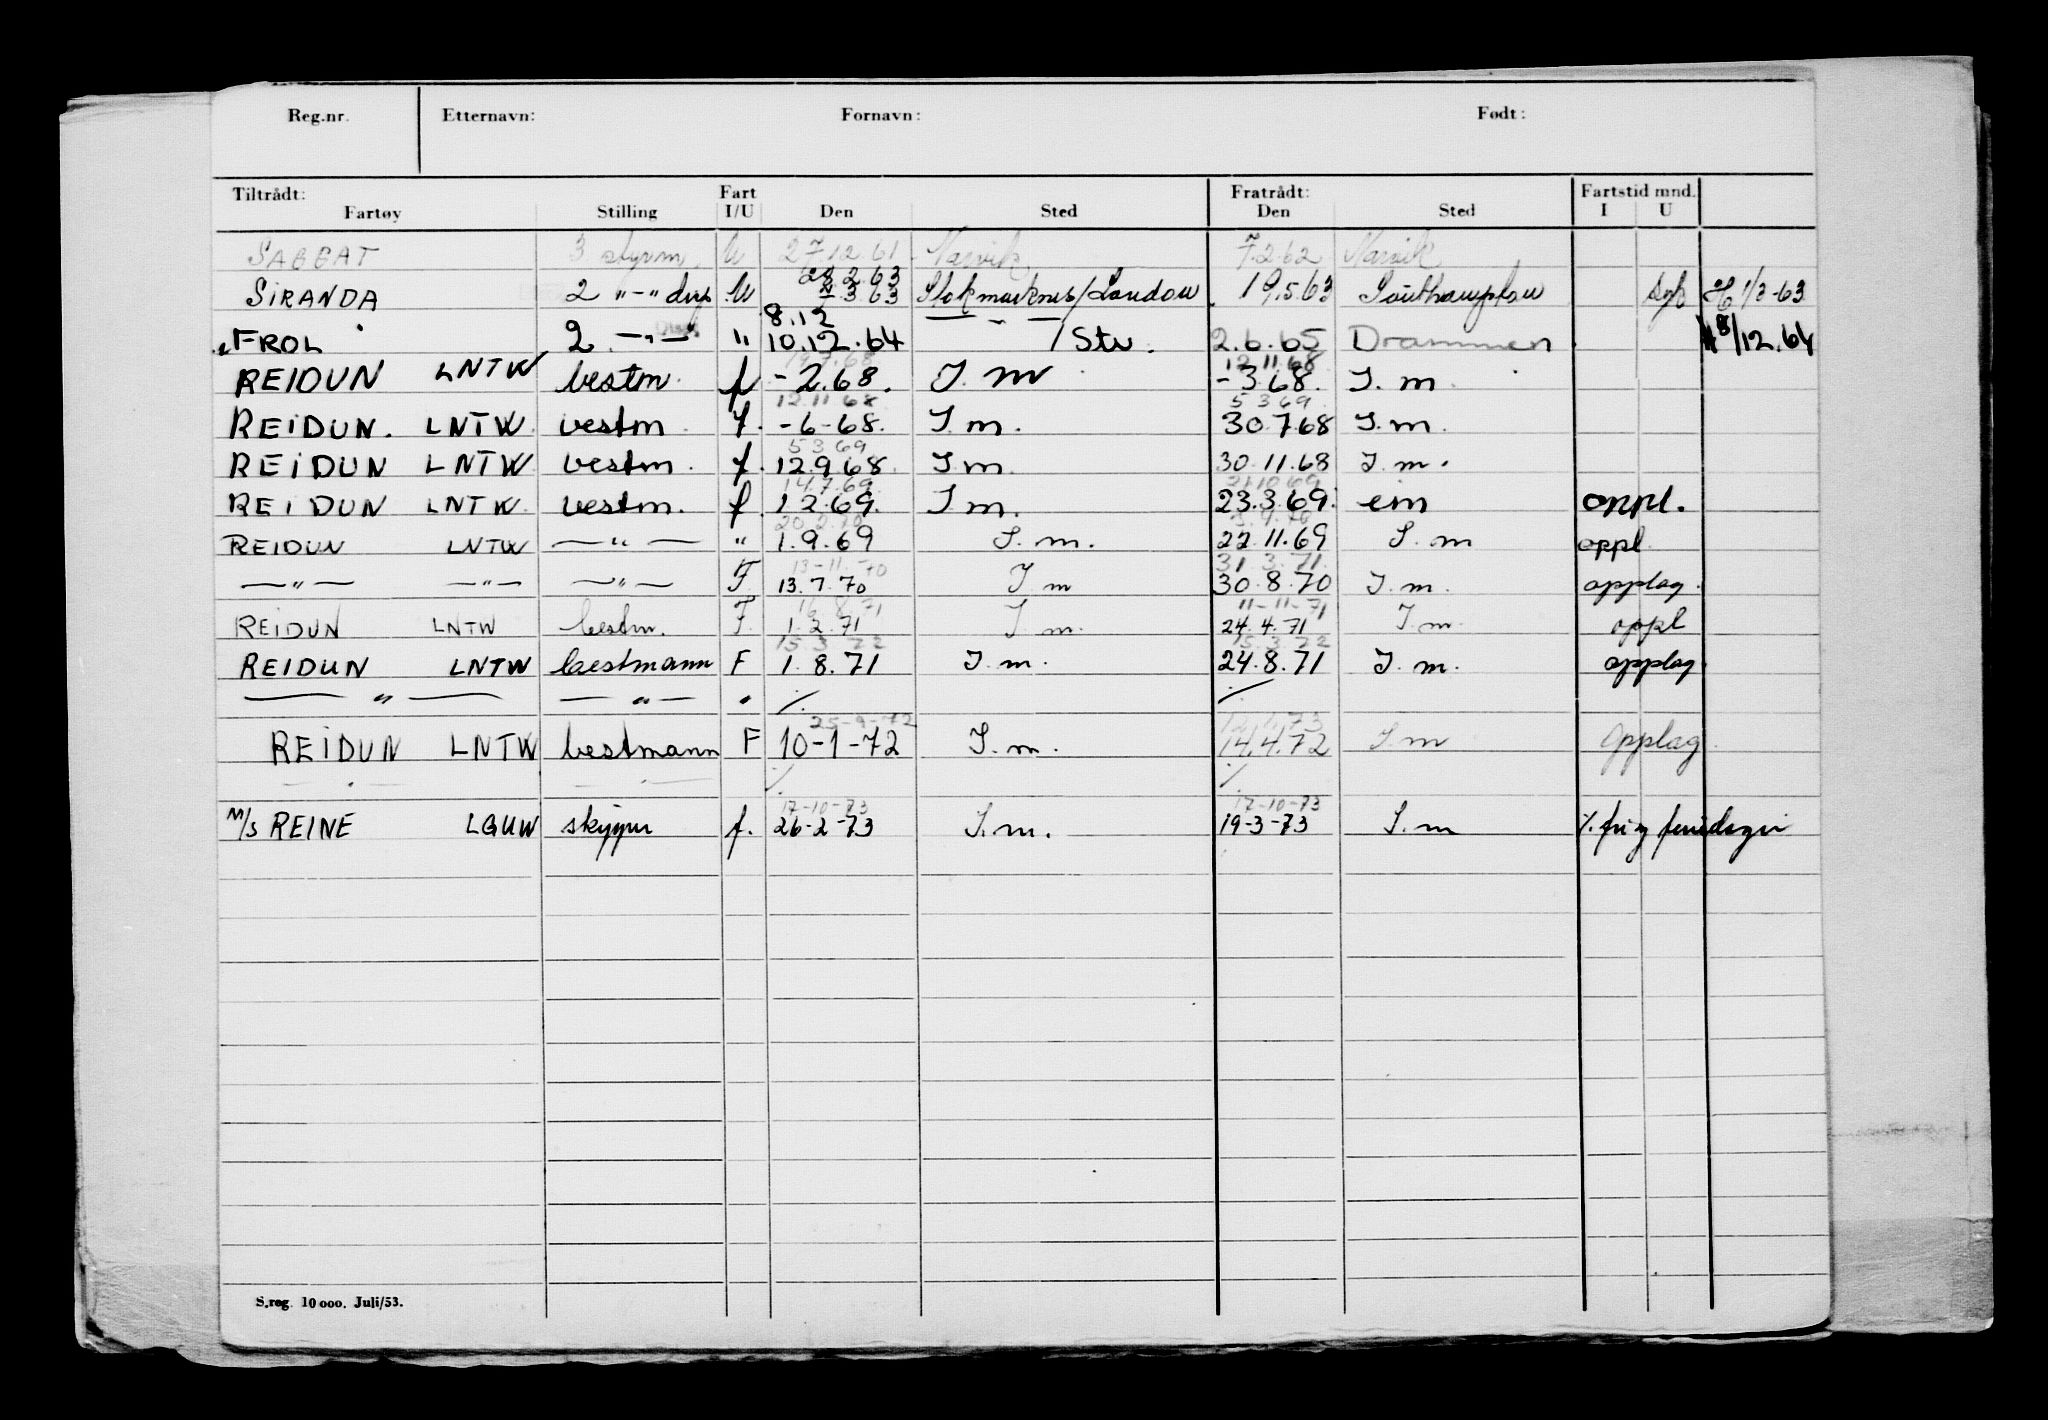 Reg.nr. Etternavn: Fornavn: Født:
Tiltrådt: Fart Fratrådt: Fartstid mnd.
Fartøy Stilling I/U Den Sted Den Sted I U
SAGGAT 3 styrm. U 27.12.61 Narvik 7.2.62 Narvik
28.2.63
SIRANDA 2 "-" U 3 63 Stokmarknes/London 19.5.63 Southampton 1/3-63
8.12
FROL 2. -"- " 10.12.64 / Stv. 2.6.65 Drammen 8/12.64
19.7.68 12.11.68
REIDUN LNTW bestm. f -2.68. I. m -3 68. I. m.
12.11 68 5 3 69
REIDUN. LNTW. bestm. f. -6-68. I.m. 30.7.68 I.m.
5 3 69
REIDUN LNTW bestm. f. 12.9.68. I m. 30.11.68 I. m.
14.7.69. 21.10 69
REIDUN LNTW. bestm. f. 1 2.69. I m. 23.3.69. eim oppl.
20 2.70
REIDUN LNTW —"— " 1.9.69 I. m. 22.11.69 I. m oppl.
13-11-70 31.3.71.
—"— —"— —"— F. 13.7.70 I m 30.8.70 I. m. opplag.
16.8.71 11-11-71
REIDUN LNTW bestm. F. 1.2.71 I. m. 24.4.71 I. m. oppl
15.3.72 15.3.72
REIDUN LNTW bestmann F 1.8.71 I. m. 24.8.71 I. m. opplag.
—"— —"— " ./. ./.
25-9-72 12.1.73
REIDUN LNTW bestmann F 10-1-72 I. m. 14.4.72 I. m opplag.
./. ./.
17-10-73 17-10-73
M/S REINE LGUW skipper f. 26-2-73 I. m. 19-3-73 I. m ./. fri og feriedager
S.reg. 10 000. Juli/53.